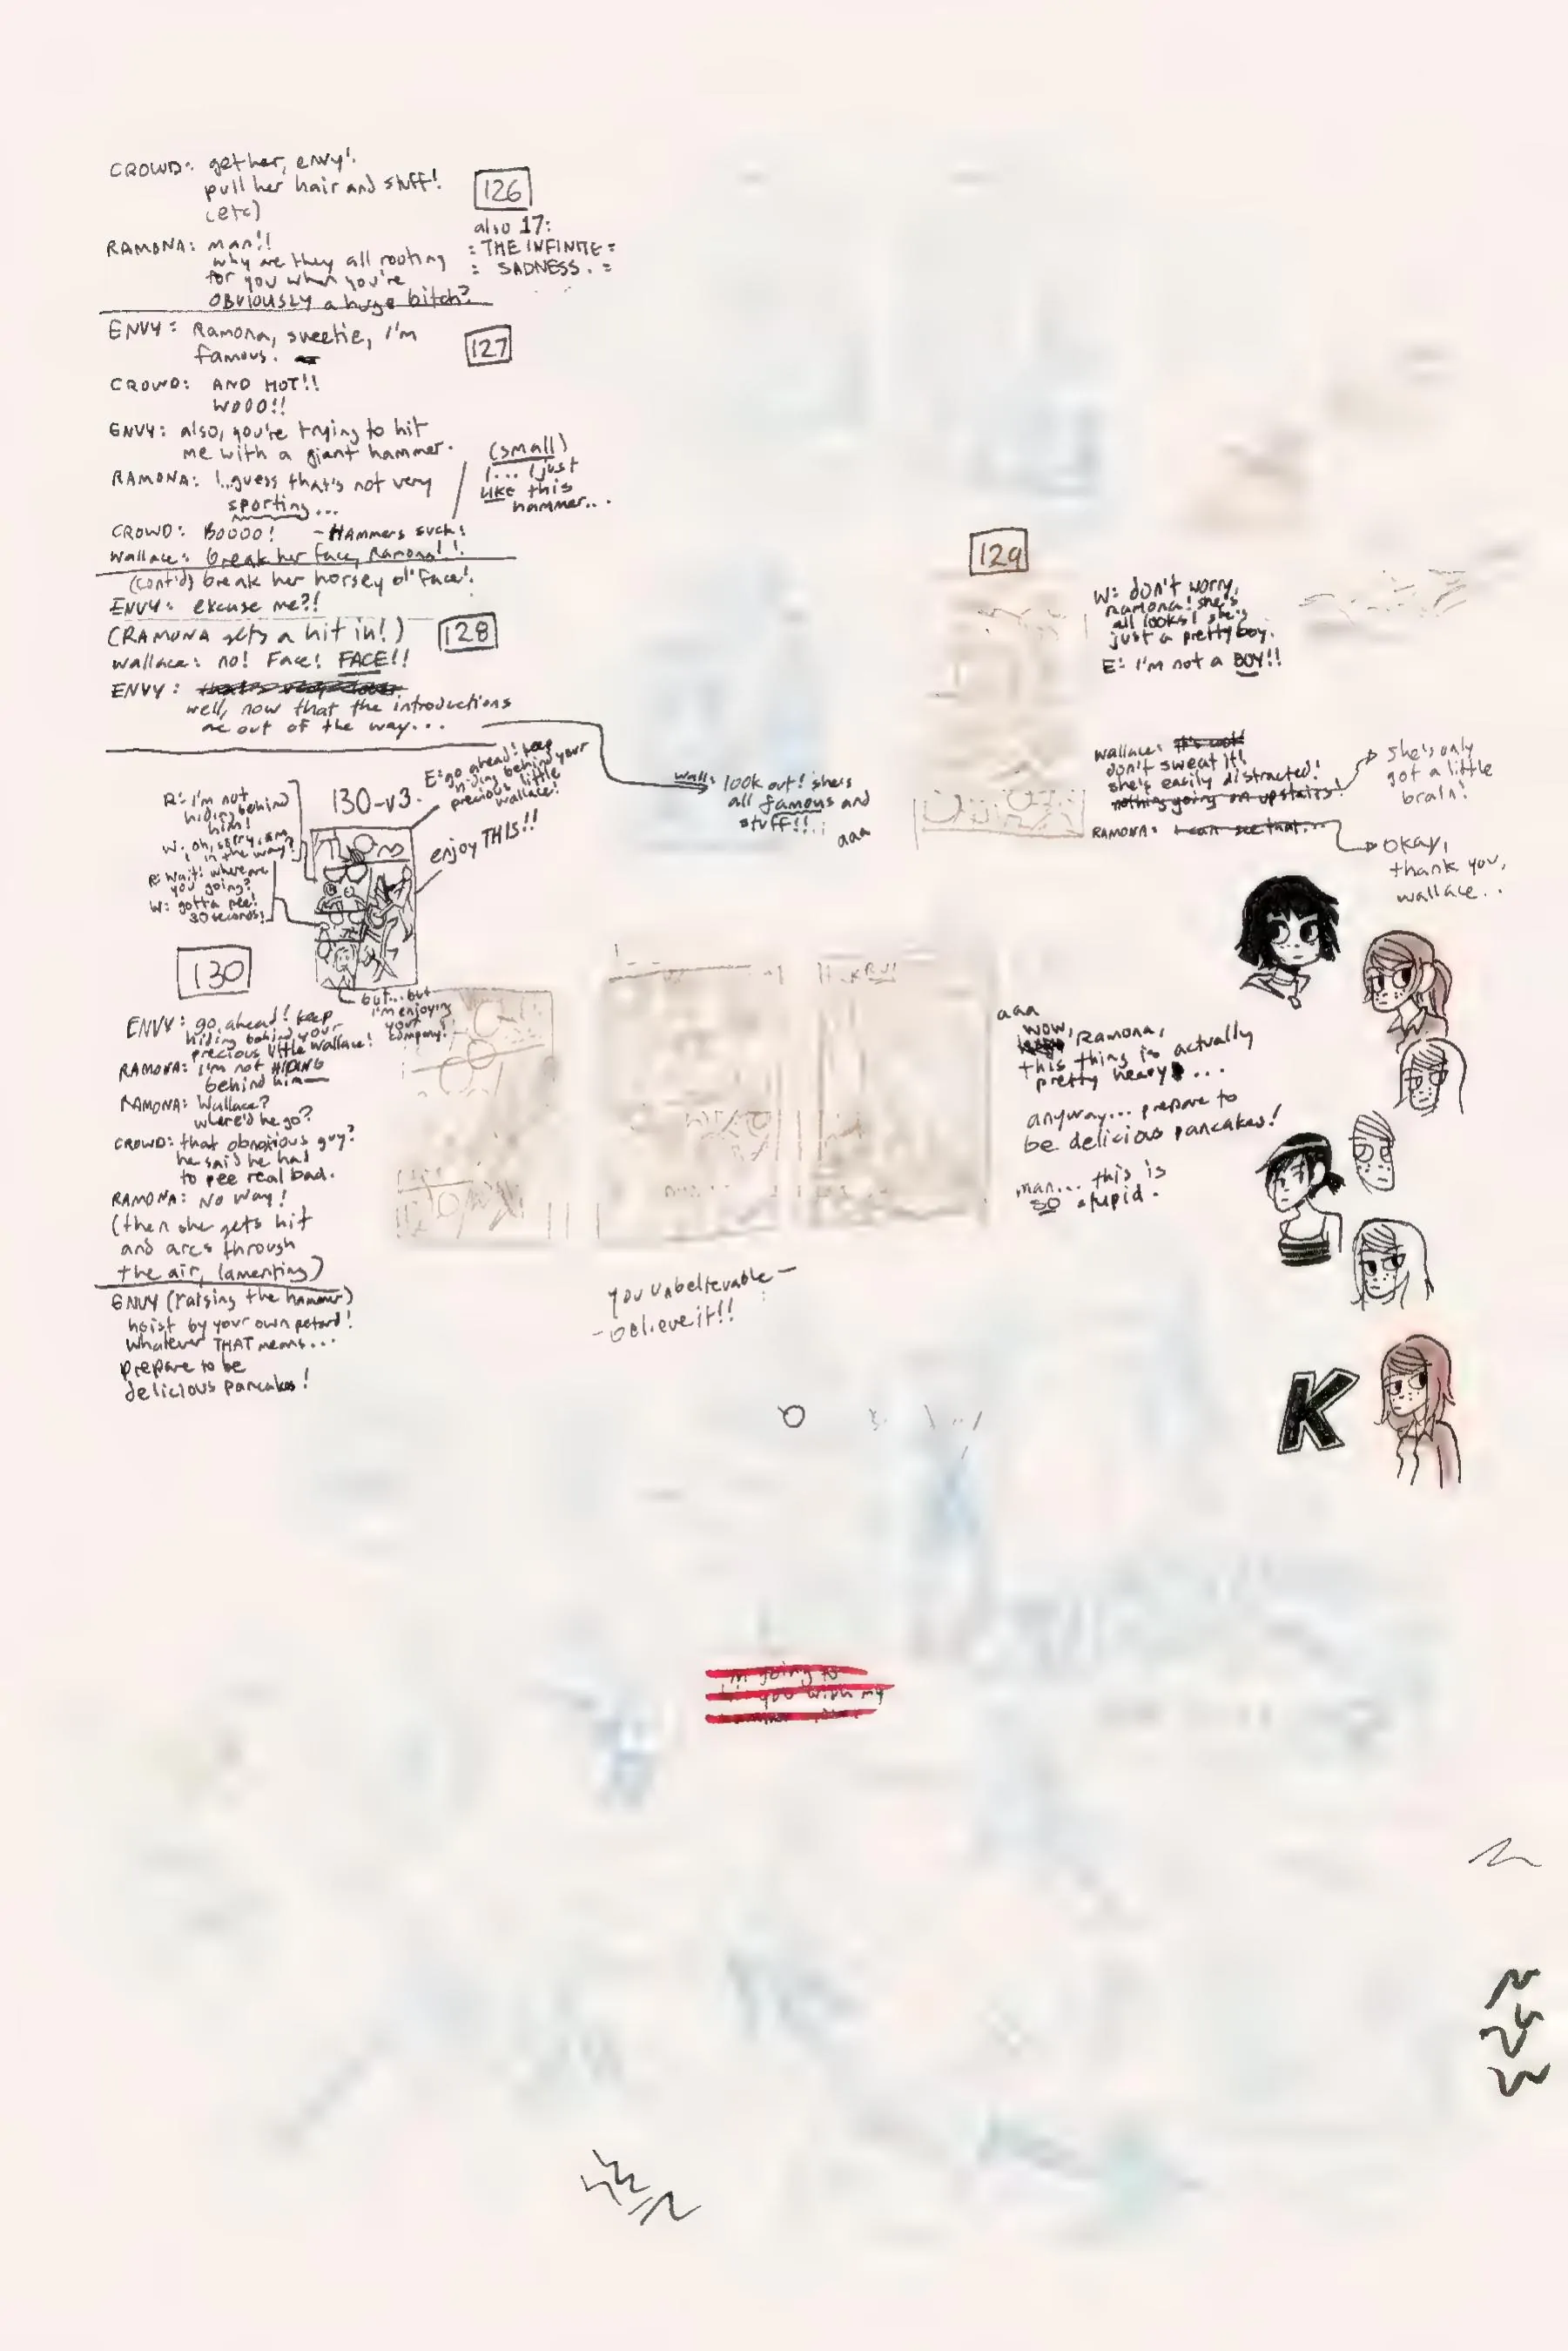 CROWD: get her, envy!
pull her hair and stuff!
(etc)
126
also 17:
: THE INFINITE :
: SADNESS. :
RAMONA: man!!
why are they all rooting
for you when you're
OBVIOUSLY a huge bitch?
ENVY: Ramona, sweetie, I'm
famous.
127
CROWD: AND HOT!!
WOOO!!
ENVY: also, you're trying to hit
me with a giant hammer.
RAMONA: I..guess that's not very
sporting...
(small)
I... I just
LIKE this
hammer...
CROWD: BOOOO! - HAMMERS SUCK!
Wallace: break her face, Ramona!!
(cont'd) break her horsey ol' face!
ENVY: excuse me?!
(RAMONA gets a hit in!)
128
Wallace: no! Face! FACE!!
ENVY:
well, now that the introductions
are out of the way...
wall: look out! she's
all famous and
stuff!!
aaa
129
W: don't worry,
Ramona! she's
all looks! she's
just a pretty boy.
E: I'm not a BOY!!
Wallace: it's not
don't sweat it!
she's easily distracted!
nothing going on upstairs!
she's only
got a little
brain!
RAMONA: I can see that...
okay,
thank you,
wallace...
130-v3.
E: go ahead! keep
hiding behind your
precious little
wallace!
enjoy THIS!!
R: I'm not
hiding behind
him!
W: oh, sorry, am
I in the way?
R: wait! where are
you going?
W: gotta pee!
30 seconds!
but... but
I'm enjoying
your
company!
130
ENVY: go ahead! keep
hiding behind your
precious little Wallace!
RAMONA: I'm not HIDING
behind him—
RAMONA: Wallace?
where'd he go?
CROWD: that obnoxious guy?
he said he had
to pee real bad.
RAMONA: No way!
(then she gets hit
and arcs through
the air, lamenting)
ENVY (raising the hammer)
hoist by your own petard!
whatever THAT means...
prepare to be
delicious pancakes!
aaa
wow, Ramona,
this thing is actually
pretty heavy...
anyway... prepare to
be delicious pancakes!
man... this is
so stupid.
you unbelievable —
— believe it!!
K
I'm going to
you with my